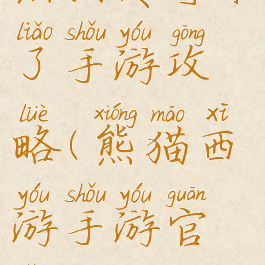 liǎo shǒu yóu gōng
了手游攻
lüè xióng māo xī
略(熊猫西
yóu shǒu yóu guān
游手游官